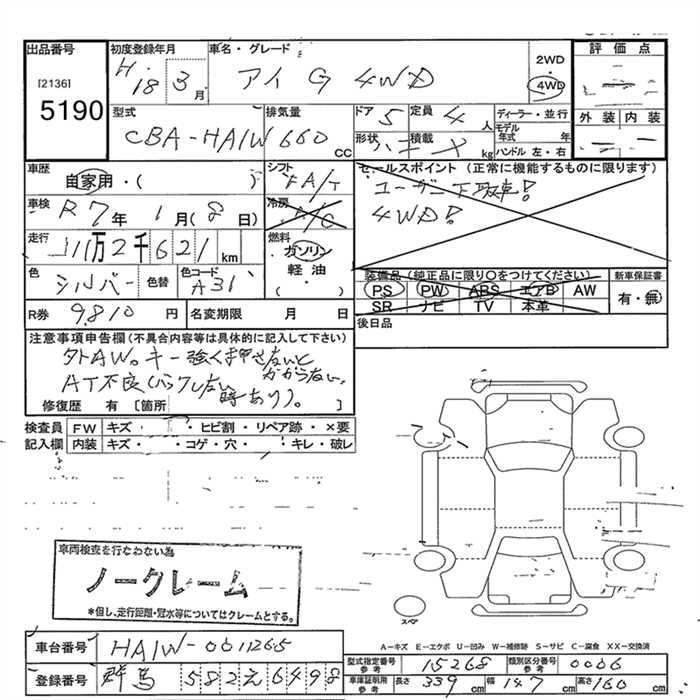 出品番号 初度登録年月 車名・グレード 評価点
[2136] 5190 H.18 3月 アイ G 4WD 2WD 4WD
外装 内装
型式 排気量 ドア 5 定員 4人 ディーラー・並行
CBA-HA1W 660cc 形状 積載 kg モデル年式 年
ハンドル 左・右
車歴 自家用・( ) シフト FA/T セールスポイント (正常に機能するものに限ります)
車検 R7年 1月(8日) 冷房 A/C ユーザー下取車!
4WD!
走行 11万2千621km 燃料 ガソリン 軽油 ( )
色 シルバー 色替 色コード A31 装備品(純正品に限り○をつけてください) 新車保証書
PS PW ABS エアB AW 有・無
SR ナビ TV 本革
R券 9,810円 名変期限 月 日
後日品
注意事項申告欄(不具合内容等は具体的に記入して下さい)
外AW。キー強く押さないとかからない。
AT不良
時あり)。
修復歴 有 [箇所 ]
検査員 FW キズ・ ・ヒビ割・リペア跡・×要
記入欄 内装 キズ・ ・コゲ・穴・ ・キレ・破レ
車両検査を行なわない為
ノークレーム
*但し、走行距離・冠水等についてはクレームとする。
スペア
A-キズ E-エクボ U-凹み W-補修跡 S-サビ C-腐食 XX-交換済
車台番号 HA1W-0011265
登録番号 群馬 582 え 6498
型式指定番号 参考 15268 類別区分番号 参考 0006
車庫証明用 参考 長さ 339cm 幅 147cm 高さ 160cm